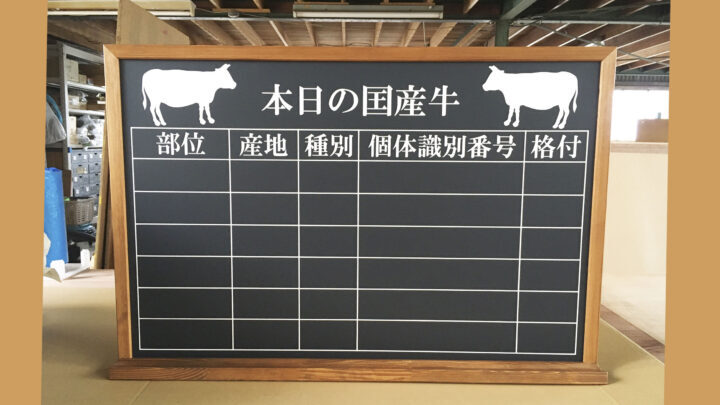 本日の国産牛
部位 産地 種別 個体識別番号 格付